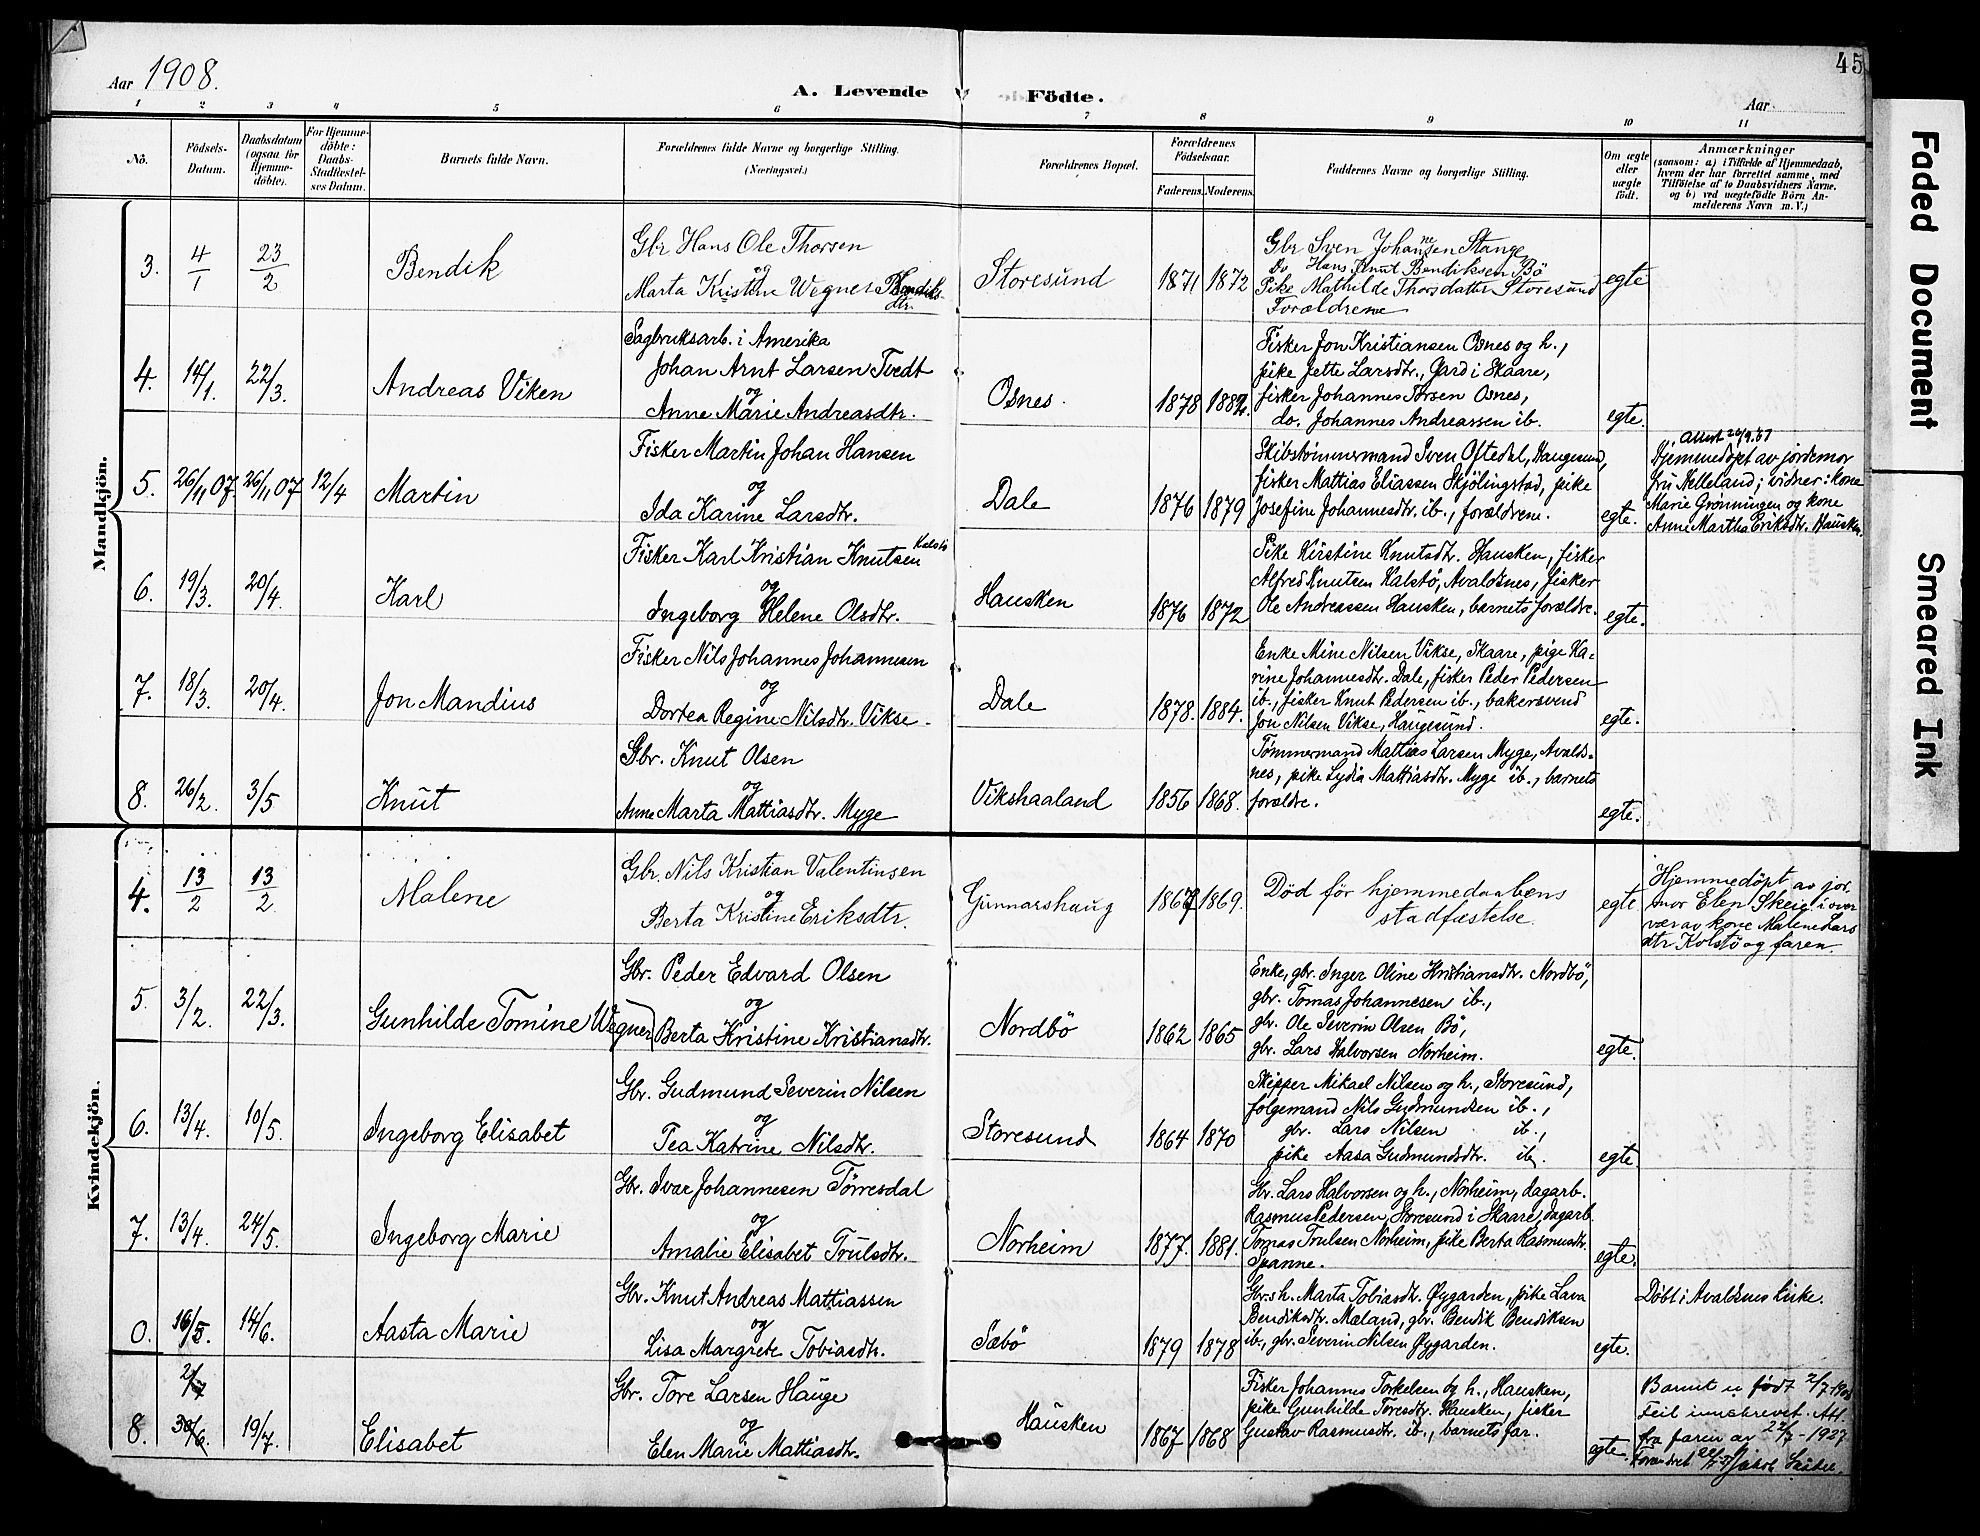 45
Aar 1908.
A. Levende Födte.
Aar
1 2 3 4 5 6 7 8 9 10 11
No.
Födsels-Datum.
Daabsdatum (ogsaa for Hjemme-döbte).
For Hjemme-döbte: Daabs-Stadfæstel-ses Datum.
Barnets fulde Navn.
Forældrenes fulde Navne og borgerlige Stilling. (Næringsvei.)
Forældrenes Bopæl.
Forældrenes Födselsaar.
Faderens. Moderens.
Faddernes Navne og borgerlige Stilling.
Om ægte eller uægte födt.
Anmærkninger
(saasom: a) i Tilfælde af Hjemmedaab,
hvem der har forrettet samme, med
Tilföielse af to Daabsvidners Navne.
og b) ved uægtefödte Börn An-
melderens Navn m. V.)
Mandkjön.
3. 4/1 23/2 Bendik
Gbr Hans Ole Thorsen
og
Marta Kristine Wegner Bendiks-
dtr.
Storesund 1871 1872
Gbr Sven Johannesen Stange
Do Hans Knut Bendiksen Bö
Pike Mathilde Thorsdatter Storesund
Forældrene
egte
4. 14/1. 22/3. Andreas Viken
Sagbruksarb. i Amerika
Johan Arnt Larsen Tvedt
og
Anne Marie Andreasdtr.
Osnes. 1878 1882.
Fisker Jon Kristiansen Osnes og h.,
pike Jette Larsdtr., Gard i Skaare,
fisker Johannes Torsen Osnes,
do. Johannes Andreassen ib.
egte.
5. 26/11 07. 26/11 07 12/4 Martin
Fisker Martin Johan Hansen
og
Ida Karine Larsdtr.
Dale 1876 1879
Skibstømmermand Sven Oftedal, Haugesund,
fisker Mattias Eliassen Skjölingstad, pike
Josefine Johannesdtr. ib., forældrene.
egte.
Hjemmedøpt av jordemor
fru Nelleland; vidner: kone
Marie Grønningen og kone
Anne Martha Eriksdtr. Hausken.
6. 19/3. 20/4. Karl
Fisker Karl Kristian Knutsen Kalstö
og
Ingeborg Helene Olsdtr.
Hausken 1876 1872
Pike Kirstine Knutsdtr. Hausken, fisker
Alfred Knutsen Kalstö, Avaldsnes, fisker
Ole Andreassen Hausken, barnets forældre.
egte.
7. 18/3. 20/4. Jon Mandius
Fisker Nils Johannes Johannesen
og
Dortea Regine Nilsdtr. Vikse.
Dale 1878. 1884.
Enke Mine Nilsen Vikse, Skaare, pige Ka-
rine Johannesdtr. Dale, fisker Peder Pedersen
ib., fisker Knut Pedersen ib., bakersvend
Jon Nilsen Vikse, Haugesund.
egte.
8. 26/2. 3/5 Knut
Gbr. Knut Olsen
og
Anne Marta Mattiasdtr. Myge
Vikshaaland 1856 1868.
Tømmermand Mattias Larsen Myge, Avalds-
nes, pike Lydia Mattiasdtr. Myge ib., barnets
forældre.
egte.
Kvindekjön.
4. 13/2 13/2 Malene
Gbr. Nils Kristian Valentinsen
og
Berta Kristine Eriksdtr.
Gunnarshaug 1867 1869.
Död för hjemmedaabens
stadfæstelse.
egte
Hjemmedöpt av jor-
mor Elen Skeie i over
vær av kone Malene Lars
dtr Kolstö og faren
5. 3/2. 22/3. Gunhilde Tomine Wegner
Gbr. Peder Edvard Olsen
og
Berta Kristine Kristiansdtr.
Nordbö 1862 1865
Enke, gbr. Inger Oline Kristiansdtr. Nordbö,
gbr. Tomas Johannesen ib.,
gbr. Ole Severin Olsen Bö,
gbr. Lars Halvorsen Norheim.
egte.
6. 13/4. 10/5. Ingeborg Elisabet
Gbr. Gudmund Severin Nilsen
og
Tea Katrine Nilsdtr.
Storesund 1864 1870
Skipper Mikael Nilsen og h., Storesund,
følgemand Nils Gudmundsen ib.,
gbr. Lars Nilsen ib.,
pike Aasa Gudmundsdtr. ib.
egte.
7. 13/4. 24/5. Ingeborg Marie
Gbr. Ivar Johannesen Tørresdal
og
Amalie Elisabet Trulsdtr.
Norheim 1877. 1881.
Gbr. Lars Halvorsen og h., Norheim, dagarb.
Rasmus Pedersen, Storesund i Skaare, dagarb.
Tomas Trulsen Norheim, pike Berta Rasmusdtr.
Spanne.
egte.
0. 16/5. 14/6. Aasta Marie
Gbr. Knut Andreas Mattiassen
og
Lisa Margrete Tobiasdtr.
Sæbö 1879 1878
Gbrsh. Marta Tobiasdtr. Øygarden, pike Lava
Bendiksdtr. Mæland, gbr. Bendik Bendiksen
ib., gbr. Severin Nilsen Øygarden.
egte.
Döbt i Avaldsnes kirke.
2/7
8. 30/6. 19/7. Elisabet
Gbr. Tore Larsen Hauge
og
Elen Marie Mattiasdtr.
Hausken 1867 1868
Fisker Johannes Torkelsen og h., Hausken,
pike Gunhilde Toresdtr. Hausken, fisker
Gustav Rasmusdtr. ib., barnets far.
egte.
Barnet er født 2/7-1908
Feil innskrevet. Att.
fra faren av 22/7-1927
Faded Document
Smeared Ink